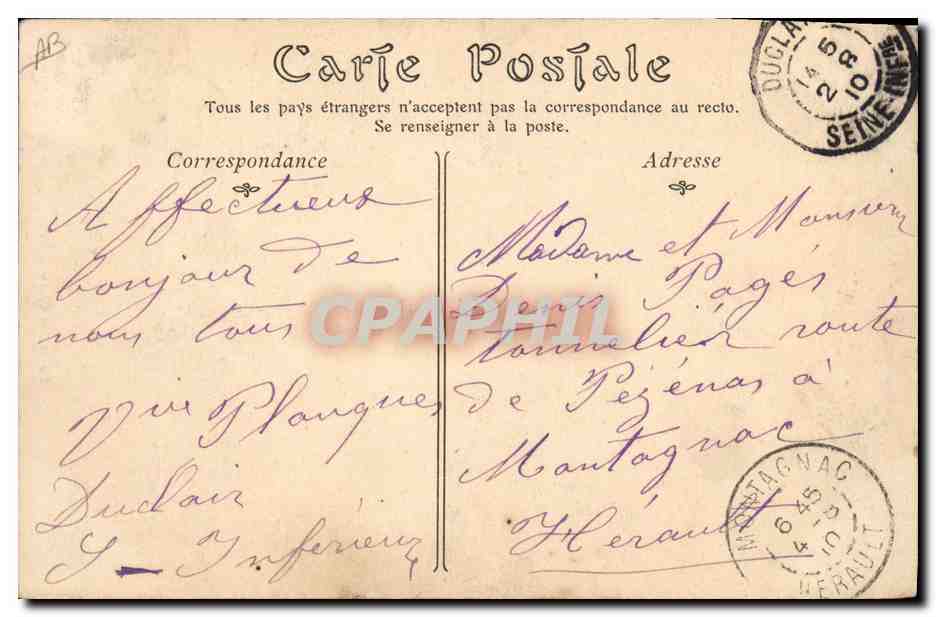 AB
Carte Postale
Tous les pays étrangers n'acceptent pas la correspondance au recto.
Se renseigner à la poste.
Correspondance
Affectueux
bonjour de
nous tous
Vve Planques
Duclair
S - Inférieure
Adresse
Madame et Monsieur
Denis Pagés
tonnelier route
de Pézénas à
Montagnac
Hérault
CPAPHIL
DUCLA
14 45
2 8
10
SEINE INFRE
MONTAGNAC
6 45
4 8
10
HERAULT